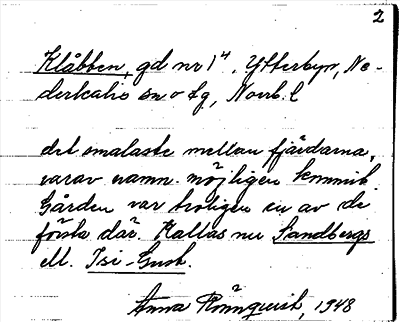 2
Klåbben, gd nr 1⁴, Ytterbyn, Ne-
derkalix sn o tg, Norrb. l
det smalaste mellan fjärdarna,
varav namn. möjligen kommit.
Gården var troligen en av de
första där. Kallas nu Sandbergs
ell. Isi-Gust.
Anna Rönnquist, 1948